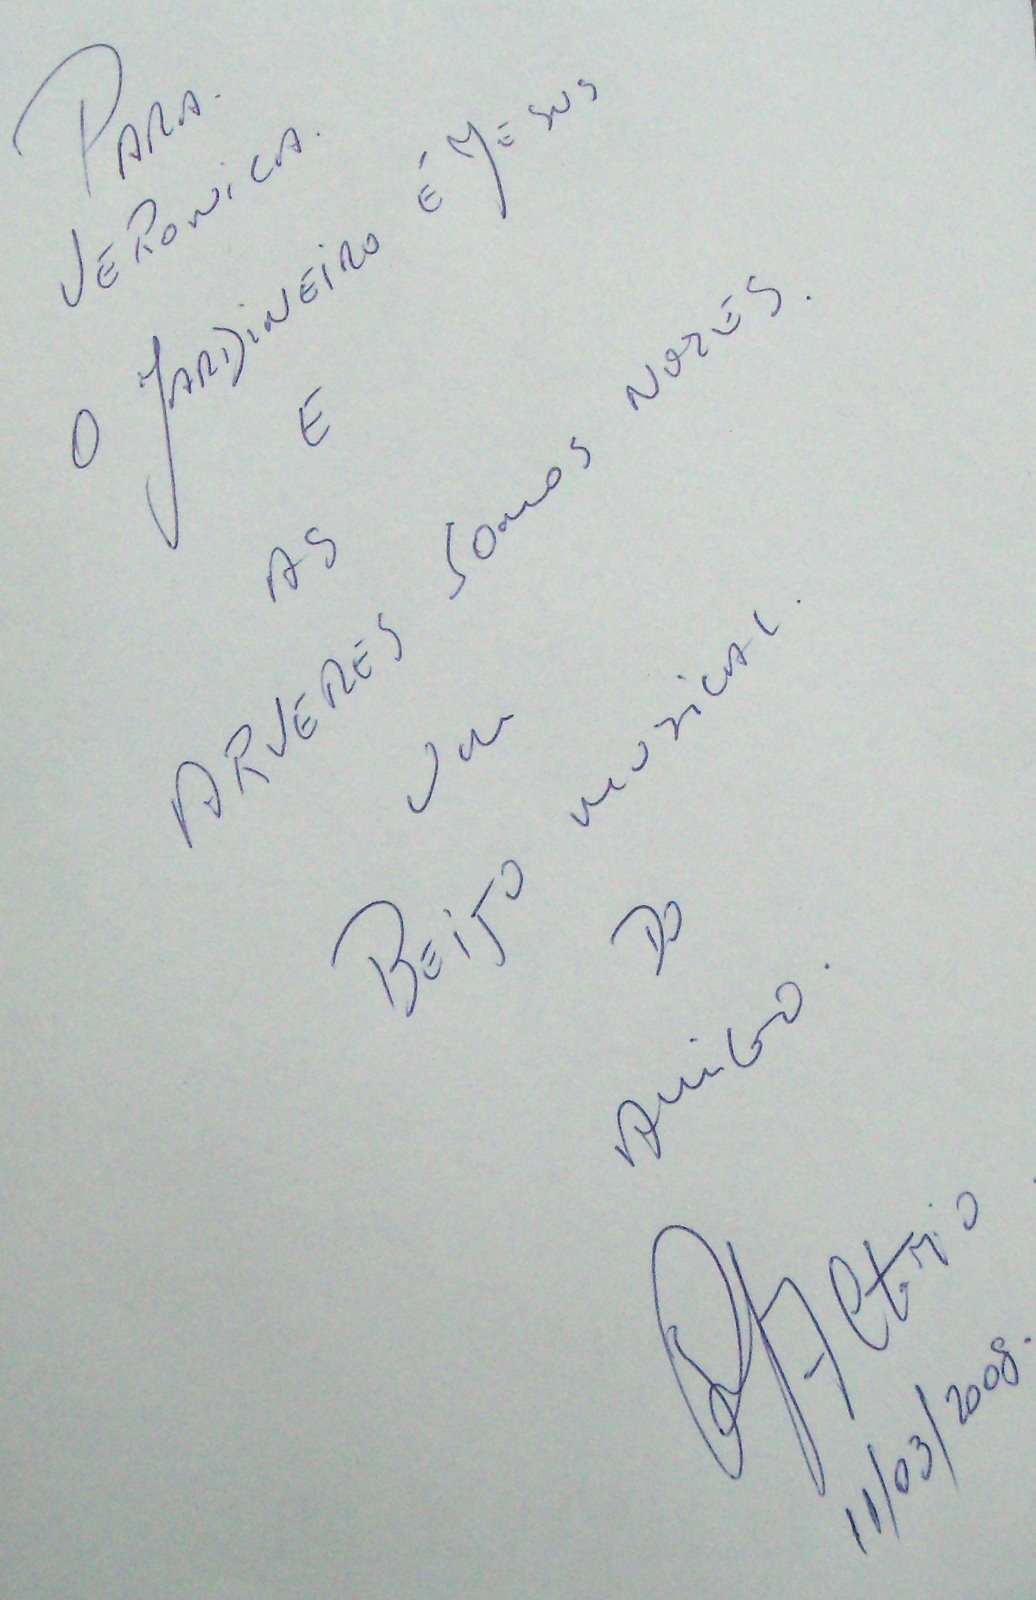 PARA.
VERONICA.
O JARDINEIRO É JESUS
E
AS
ARVERES SOMOS NOZES.
UM
BEIJO MUZICAL.
DO
AMIGO.
11/03/2008.